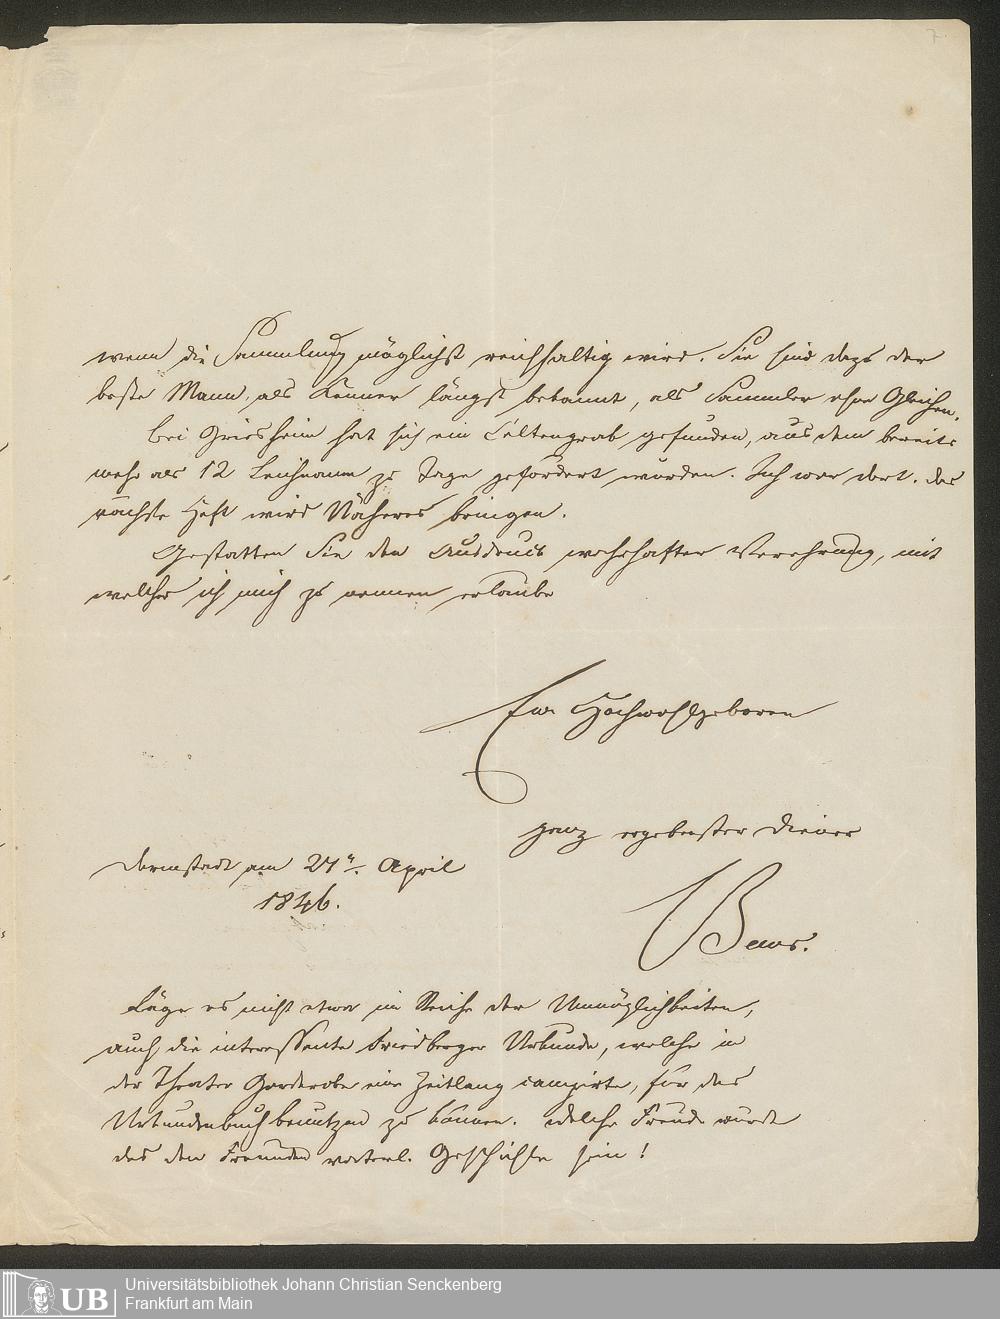 7.
wenn die Sammlung möglichst reichhaltig wird. Sie sind dazu der
beste Mann, als Kenner längst bekannt, als Sammler ohne Gleichen.
Bei Griesheim hat sich ein Celtengrab gefunden, aus dem bereits
mehr als 12 Leichname zu Tage gefördert wurden. Ich war dort. das
nächste Heft wird Näheres bringen.
Gestatten Sie den Ausdruck wahrhafter Verehrung, mit
welcher ich mich zu nennen erlaube
Euer Hochwohlgeboren
ganz ergebenster Diener
Darmstadt am 27n. April
1846.
Läge es nicht etwa im Reiche der Unmöglichkeiten,
auch die interessante Friedberger Urkunde, welche in
der Theater Garderobe eine Zeitlang campirte, für das
Urkundenbuch benutzen zu können. Welche Freude würde
das den Freunden vaterl. Geschichte sein!
UB
Universitätsbibliothek Johann Christian Senckenberg
Frankfurt am Main